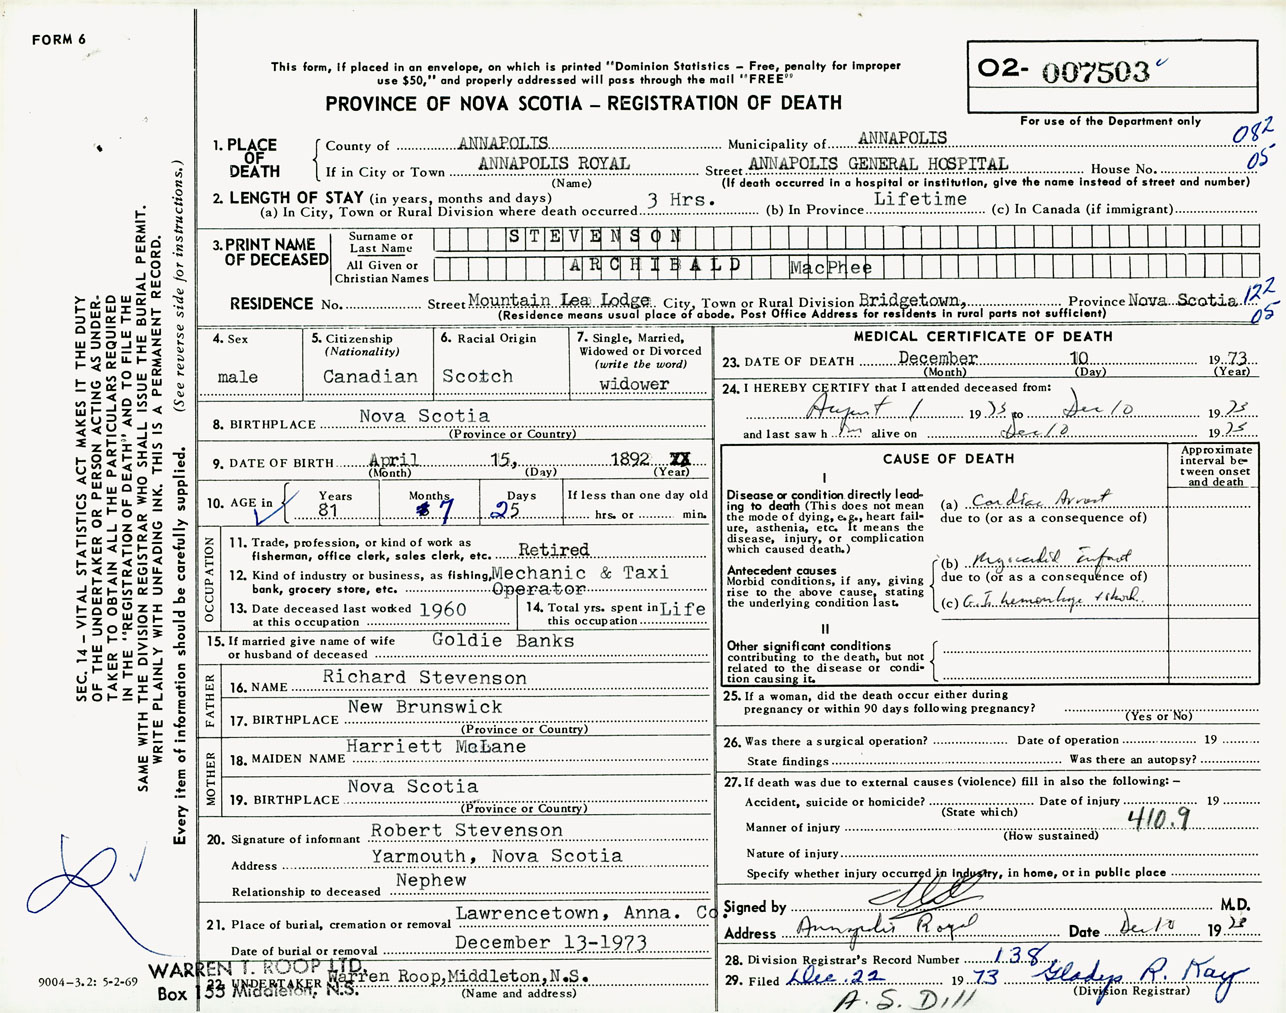 FORM 6
This form, if placed in an envelope, on which is printed "Dominion Statistics – Free, penalty for improper
use $50," and properly addressed will pass through the mail "FREE"
PROVINCE OF NOVA SCOTIA – REGISTRATION OF DEATH
O2- 007503
For use of the Department only
082
05
1. PLACE OF DEATH
County of ANNAPOLIS Municipality of ANNAPOLIS
If in City or Town ANNAPOLIS ROYAL Street ANNAPOLIS GENERAL HOSPITAL House No.
(Name) (If death occurred in a hospital or institution, give the name instead of street and number)
2. LENGTH OF STAY (in years, months and days)
(a) In City, Town or Rural Division where death occurred 3 Hrs. (b) In Province Lifetime (c) In Canada (if immigrant)
3. PRINT NAME OF DECEASED
Surname or Last Name STEVENSON
All Given or Christian Names ARCHIBALD MacPhee
RESIDENCE No. Street Mountain Lea Lodge City, Town or Rural Division Bridgetown, Province Nova Scotia 122
05
(Residence means usual place of abode. Post Office Address for residents in rural parts not sufficient)
4. Sex
male
5. Citizenship
(Nationality)
Canadian
6. Racial Origin
Scotch
7. Single, Married,
Widowed or Divorced
(write the word)
widower
8. BIRTHPLACE Nova Scotia
(Province or Country)
9. DATE OF BIRTH April 15, 1892
(Month) (Day) (Year)
10. AGE in
Years 81
Months 7
Days 25
If less than one day old
hrs. or min.
OCCUPATION
11. Trade, profession, or kind of work as
fisherman, office clerk, sales clerk, etc. Retired
12. Kind of industry or business, as fishing, Mechanic & Taxi
bank, grocery store, etc. Operator
13. Date deceased last worked 1960
at this occupation
14. Total yrs. spent in Life
this occupation
15. If married give name of wife Goldie Banks
or husband of deceased
FATHER
16. NAME Richard Stevenson
17. BIRTHPLACE New Brunswick
(Province or Country)
MOTHER
18. MAIDEN NAME Harriett McLane
19. BIRTHPLACE Nova Scotia
(Province or Country)
20. Signature of informant Robert Stevenson
Address Yarmouth, Nova Scotia
Relationship to deceased Nephew
21. Place of burial, cremation or removal Lawrencetown, Anna. Co.
Date of burial or removal December 13-1973
WARREN T. ROOP LTD.
22. UNDERTAKER Warren Roop, Middleton, N.S.
Box 133 Middleton, N.S.
(Name and address)
MEDICAL CERTIFICATE OF DEATH
23. DATE OF DEATH December 10 1973
(Month) (Day) (Year)
24. I HEREBY CERTIFY that I attended deceased from:
August 1 1973 to Dec 10 1973
and last saw him alive on Dec 10 1973
CAUSE OF DEATH
Approximate interval between onset and death
I
Disease or condition directly lead-
ing to death (This does not mean
the mode of dying, e.g., heart fail-
ure, asthenia, etc. It means the
disease, injury, or complication
which caused death.)
(a) Cardiac Arrest
due to (or as a consequence of)
Antecedent causes
Morbid conditions, if any, giving
rise to the above cause, stating
the underlying condition last.
(b) Myocardial Infarct
due to (or as a consequence of)
(c) G.I. hemorrhage & shock.
II
Other significant conditions
contributing to the death, but not
related to the disease or condi-
tion causing it.
25. If a woman, did the death occur either during
pregnancy or within 90 days following pregnancy?
(Yes or No)
26. Was there a surgical operation? Date of operation 19
State findings Was there an autopsy?
27. If death was due to external causes (violence) fill in also the following: –
Accident, suicide or homicide? Date of injury 19
(State which)
Manner of injury 410.9
(How sustained)
Nature of injury
Specify whether injury occurred in Industry, in home, or in public place
Signed by M.D.
Address Annapolis Royal Date Dec 10 1973
28. Division Registrar's Record Number 138
29. Filed Dec. 22 1973 Gladys R. Kay
(Division Registrar)
A. S. Dill
9004-3.2: 5-2-69
SEC. 14 – VITAL STATISTICS ACT MAKES IT THE DUTY
OF THE UNDERTAKER OR PERSON ACTING AS UNDER-
TAKER TO OBTAIN ALL THE PARTICULARS REQUIRED
IN THE "REGISTRATION OF DEATH" AND TO FILE THE
SAME WITH THE DIVISION REGISTRAR WHO SHALL ISSUE THE BURIAL PERMIT.
WRITE PLAINLY WITH UNFADING INK. THIS IS A PERMANENT RECORD.
Every item of information should be carefully supplied. (See reverse side for instructions.)